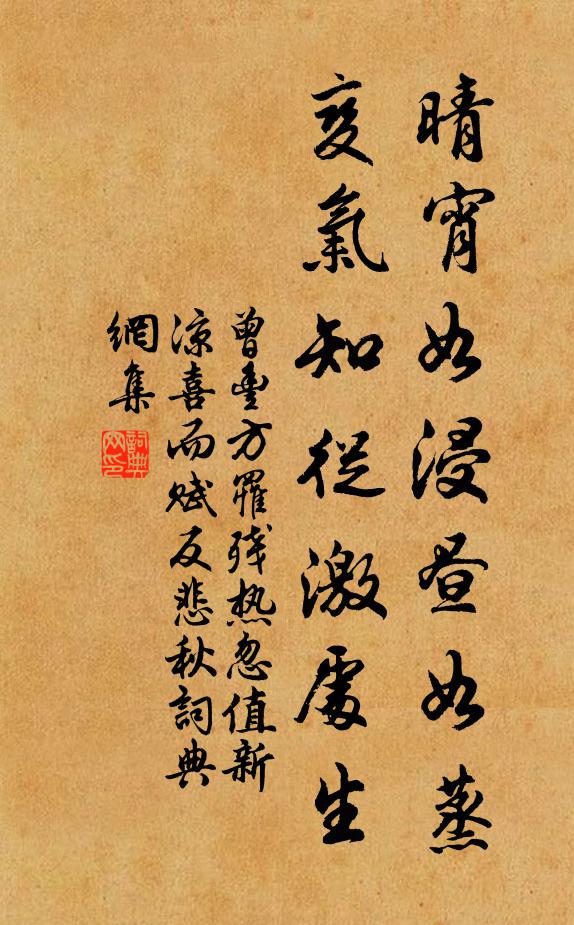 晴宵如浸昼如蒸
变氣知從激處生
曾豊方罹残热忽值新
凉喜而赋反悲秋詞典
網集
詞典
网印